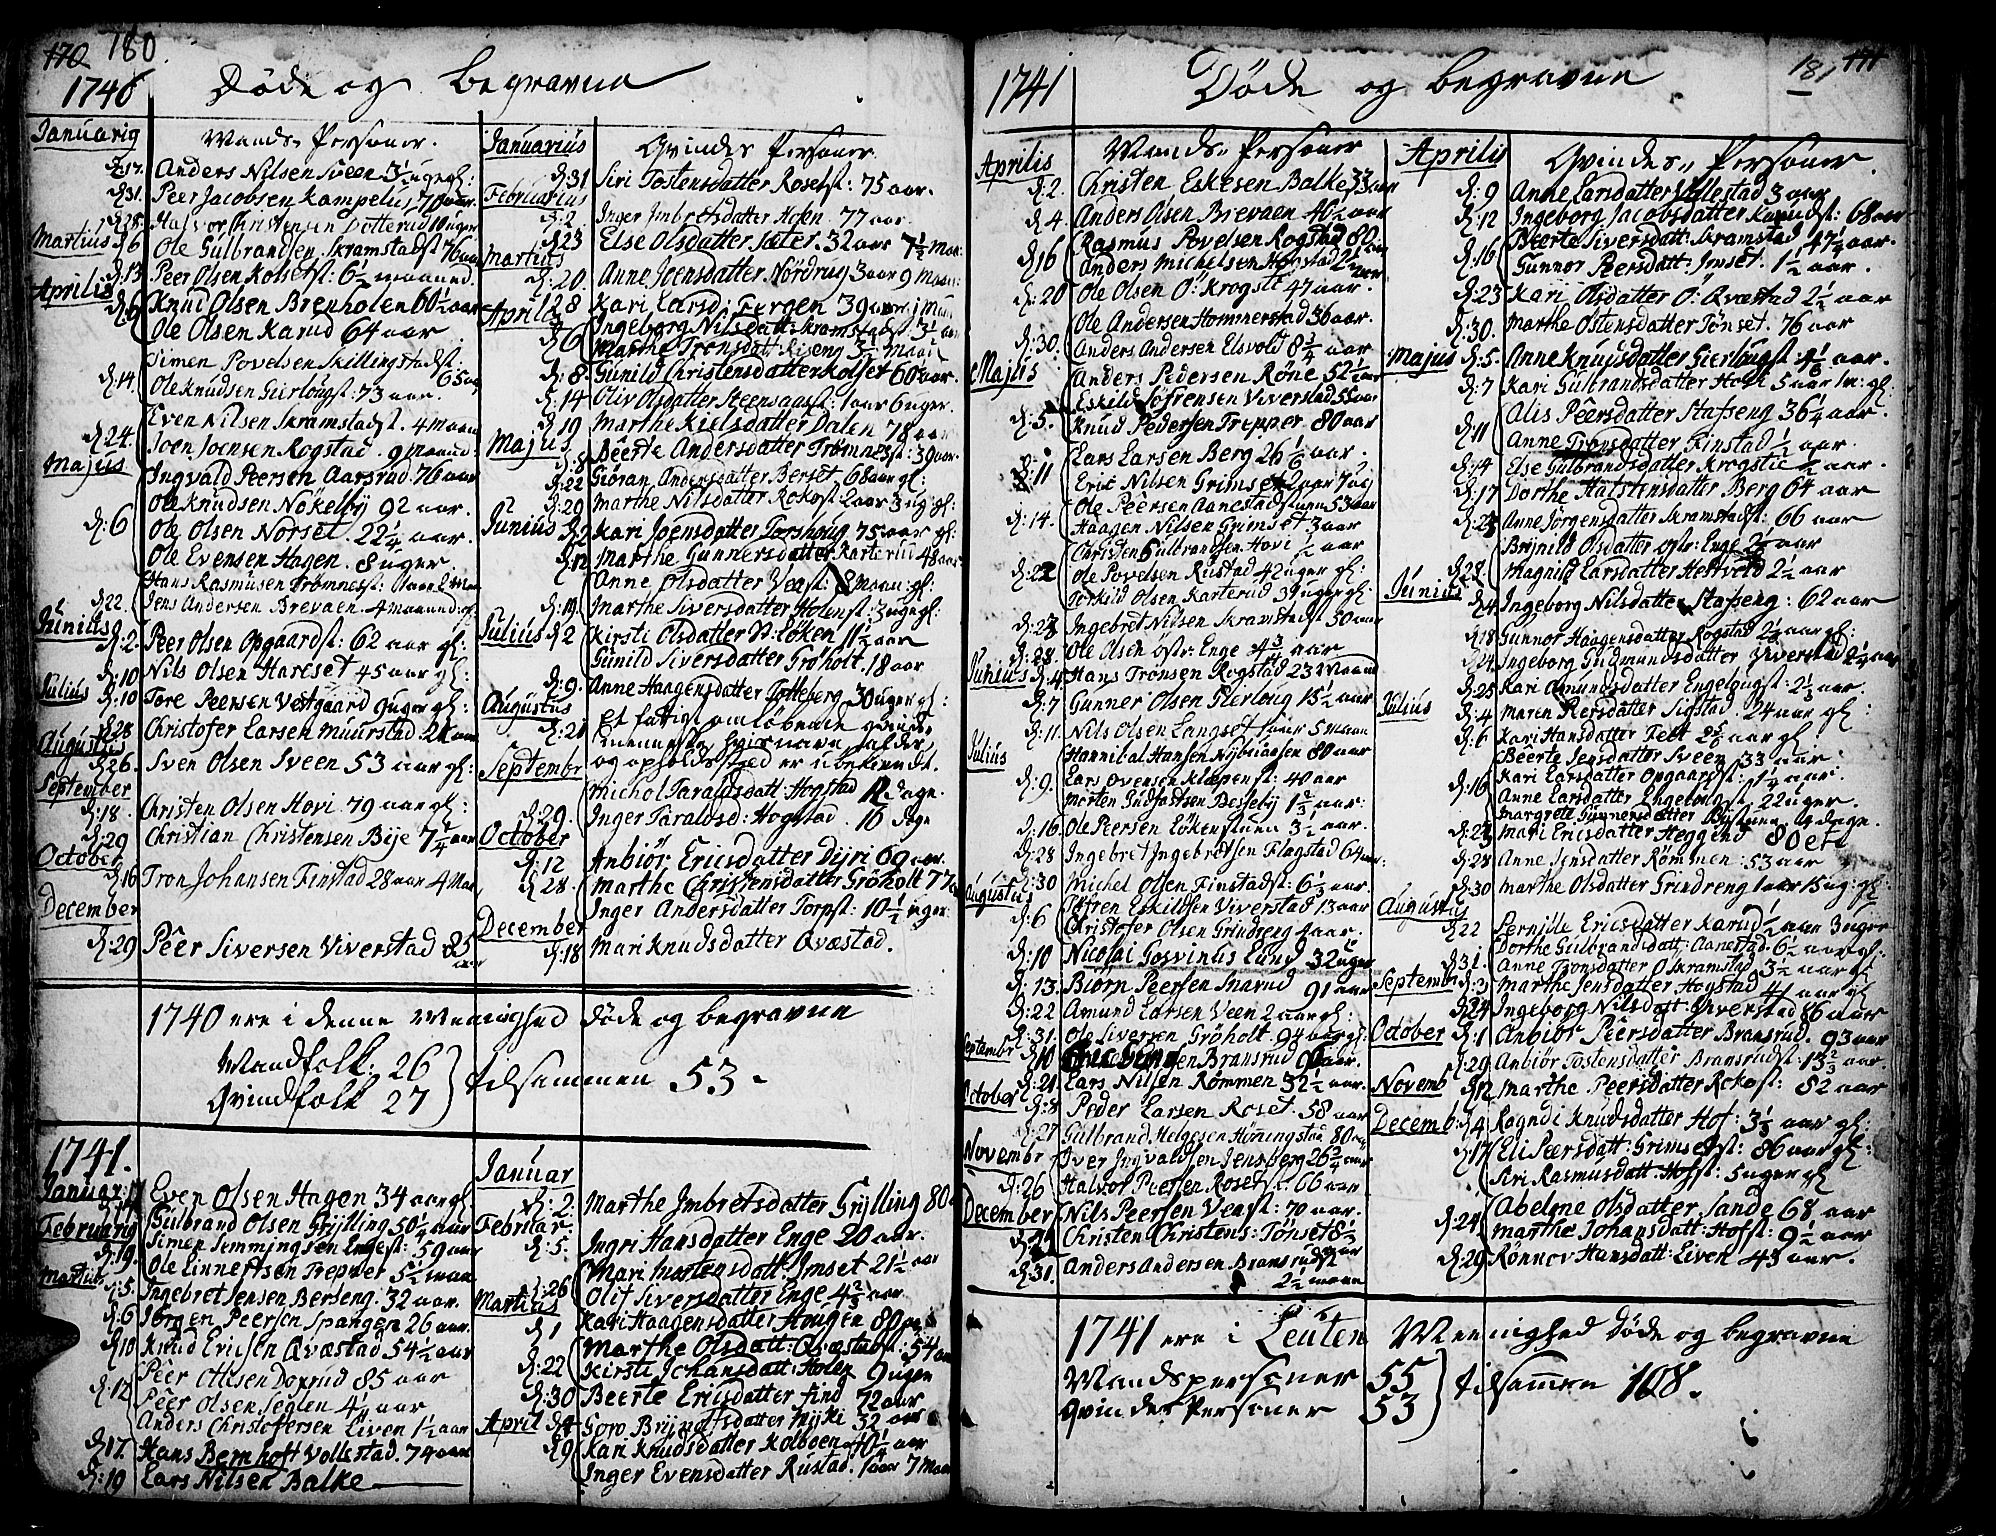 170 180
1740 Døde og begravne
Januarij
Mands Personer.
d. 17. Anders Nilsen Sveen 3½ uge gl:
d. 31. Peer Jacobsen Kampelus, 70 aar
d. 28. Halvor Christensen Dotterud 10 uger
Martius d. 6 Ole Gulbrandsen Skramstadst 76 aar
d. 13 Peer Olsen Kolsetst: 6½ maaned
Aprilis
d. 6 Knud Olsen Brenholen 60½ aar
Ole Olsen Karud 64 aar
Simen Povelsen Skillingstadst: 65 aar
d. 14 Ole Knudsen Gierlougst: 73 aar.
Even Nilsen Skramstadst. 4 maan
d. 24. Joen Joensen Rogstad 9 maaned
Majus
Ingvald Peersen Aarsrud 76 aar
Ole Knudsen Nökelby 92 aar.
d. 6 Ole Olsen Norset. 22¼ aar.
Ole Evensen Hagen. 8 uger.
Hans Rasmusen Trømnesst: 1 aar 2 Maa
d. 22. Jens Andersen Brevaen. 4 maaned gl
Junius
d. 2. Peer Olsen Opgaardst: 62 aar gl:
d. 10 Nils Olsen Harlset 45 aar gl:
Julius d. 10 Tore Peersen Vestgaard 9 uger gl:
d. 28 Christofer Larsen Muurstad 21 aar
Augustus
d. 26. Sven Olsen Sveen 53 aar gl:
September
d. 18. Christen Olsen Hovi 79 aar gl:
d. 29 Christian Christensen Bije 7¼ aar
October
d. 16 Tron Johansen Finstad 28 aar 4 Maa
December
d. 29 Peer Siversen Viverstad 25 aar
Januarius
Qvindes Personer.
d. 31 Siri Tostensdatter Rosetst: 75 aar.
Februarius
d. 2 Inger Imbretsdatter Holen. 77 aar
d. 23 Else Olsdatter Sæter. 32 aar 7½ Maa
Martius
d. 20. Anne Joensdatter Nordrug 3 aar 9 Maan
d. 28 Kari Larsd: Fergen 39 aar 1 Maa
Aprilis
d. 6 Ingeborg Nilsdatt: Skramstadst. 3½ aar
Marthe Tronsdatt: Riseng 3½ Maan
d. 8. Gunild Christensdatter Kolset 60 aar.
d. 14 Oliv Olsdatter Steensaast: 1 aar 6 uger.
d. 19 Marthe Kielsdatter Dalen 78 aar
Majus
d. 8 Beerte Andersdatter Trømnest: 39 aar
d. 22 Gioran Andersdatter Berset 68 aar gl:
d. 29 Marthe Nilsdatter Rokost 2 aar 3 ug gl:
Junius d. 2 Kari Joensdatter Torshoug 75 aar gl:
d. 12 Marthe Gunnersdatter Karterud 48 aar
Anne Olsdatter Veast: 8 maan: gl:
d. 19. Marthe Siversdatter Holenst: 3 uge gl:
Julius d. 2 Kirsti Olsdatter N: Löken 11½ aar
Gunild Siversdatter Gröholt. 18 aar
d. 9. Anne Haagensdatter Totteberg 30 uger gl:
Augustus
d. 21 Et fattigt omløbende qvinde
menneske hvis navn alder
og opholdssted er ubekiendt.
Septembr
Michol Taraldsdatt Hogstad 12 dage.
d. 29. Inger Taraldsd: Hogstad. 16 dage
October
d. 12 Anbiör Ericsdatter Dijri 69 aar.
d. 28. Marthe Christensdatter Gröholt 77 aar
Inger Andersdatter Torpst: 10½ uger
December
d. 18 Mari Knudsdatter Qvæstad.
1740 ere i denne Meenighed døde og begravne
Mandfolk: 26
Qvindfolk 27
tilsammen 53.
1741.
Januar: Even Olsen Hagen 34 aar gl
Februarij Gulbrand Olsen Grylling 50¼ aar
Simen Semmingsen Engest: 59 aar
d. 19. Ole Linnertsen Trepper 5½ maan
Martius
d. 5. Ingebret Jensen Berseng. 32 aar.
d. 6 Jörgen Peersen Spangen 26 aar.
d. 10 Knud Ericsen Qvæstad 54½ aar
Peer Ottesen Doprud 85 aar
d. 12 Peer Olsen Seglen 4 aar
Anders Christofersen Liven 1½ aar
d. 17. Hans Bernhoft Vollestad. 74 aar
d. 19 Lars Nilsen Balke
Januar
d. 2. Marthe Imbretsdatter Grylling 80 a
Februar
d. 5. Ingri Hansdatter Enge 20 aar.
Mari Mortensdatt: Imset 21½ aar
d. 26 Olif Siversdatter Enge 4⅔ aar
Martius
d. 1 Kari Haagensdatter Haugen 80
Marthe Olsdatt: Qvæstadst: 54 aar
d. 22 Kirsti Johansdatt: Holen 9 ugen
d. 30 Beerte Ericsdatter Lind 72 aar
April d. 4 Goro Brijnolfsdatter Mijki 52 aar
d. 9 Kari Knudsdatter Kolboen 40¼ aar
Inger Evensdatter Rustad. 1 aar 7 Maan
181 171
1741 Döde og begravne
Aprilis
Mands Personer
d. 2. Christen Eskesen Balke 33 aar
d. 4 Anders Olsen Brevaen 40½ aar
Rasmus Povelsen Rogstad 80
d. 16 Anders Michelsen Hogstad 2½ aar
d. 20 Ole Olsen O: Krogst 47 aar.
Ole Andersen Hommerstad 36 aar.
d. 30. Anders Andersen Elsvold 8¾ aar
Majus
Anders Pedersen Røne 52½ aar
Eskild Søfrensen Viverstad 55 aar
d. 5. Knud Pedersen Trepper 80 aar
Lars Larsen Berg 26⅙ aar.
d. 11 Eric Nilsen Grimset 2 aar 7 ug
Ole Peersen Aanestadstuen 53 aar
d. 14. Haagen Nilsen Grimset 3 aar
Christen Gulbrandsen Hovi ½ aar
d. 22 Ole Povelsen Rustad 42 uger gl:
Torkild Olsen Karterud 3 uger gl:
d. 23 Ingebret Nilsen Skramstadst 50 aar
d. 28. Ole Olsen östr: Enge 4¾ aar
Junius d. 4. Hans Tronsen Rogstad 23 Maan
d. 7 Gunner Olsen Gierloug 15½ aar
d. 11. Nils Olsen Langset 1 aar 5 maan
Julius
Hannibal Hansen Nybruosen 80 aar
d. 9. Lars Ovensen Klæpenst: 40 aar
Morten Gudfastsen Besseby 1 aar.
d. 16 Ole Peersen Lökenstuen 3½ aar.
d. 28 Ingebret Ingebretsen Flagstad 64 aar
d. 30 Michel Olsen Finstadst: 6½ aar.
Augustus
Söfren Eskildsen Viverstad 13 aar
d. 6 Christofer Olsen Grindreng 1 aar.
d. 10 Nicolai Gosvinius Lund 32 uger
d. 13. Biörn Peersen Snarud 91 aar
d. 22 Amund Larsen Veen 2 aar gl:
d. 31. Ole Siversen Gröholt. 94 aar gl.
Septembr d. 10 Bransrud aar.
d. 21 Lars Nilsen Rømmen 32½ aar.
October
d. 8 Peder Larsen Roset. 58 aar
d. 27 Gulbrand Helgesen Hönningstad 80
Novembr Iver Ingvaldsen Jensberg 26¾ aar
d. 26 Halvor Peersen Rosetst. 66 aar
December Nils Peersen Venst: 70 aar.
Christen Christens: Tønset 8½ aar
d. 31. Anders Andersen Bransrudst 2½ maan
Aprilis
Qvindes Personer
d. 9 Anne Larsdatter Vollestad 3 aar
d. 12 Ingeborg Jacobsdatter Karudst: 68 aar
Beerte Siversdatt: Skramstad 47½ aar.
d. 16 Gunnor Peersdatt: Imset. 1½ aar.
d. 23 Kari Olsdatter O: Qvæstad 2½ aar
d. 30. Marthe Ostensdatter Tönset. 76 aar
Majus d. 5. Anne Knudsdatter Gierlougst 4⅙ aar.
d. 7 Kari Gulbrandsdatter Holt 5 aar
Alis Peersdatter Stafseng 36¼ aar.
d. 11 Anne Tronsdatter Finstad ½ aar.
d. 14 Else Gulbrandsdatter Krogstie ½ aar.
d. 17 Dorthe Halstensdatter Berg 64 aar
d. 23 Anne Jörgensdatter Skramstadst: 66 aar
Brijnild Olsdatter östr: Enge 2½ aar
d. 28 Magnild Larsdatter Hestvold 2½ aar
Junius
d. 4 Ingeborg Nilsdatter Stafseng: 62 aar
d. 18 Gunnor Haagensdatter Rogstad 2½ aar gl:
d. 24 Ingeborg Gudmundsdatter Viverstad 2½ aar
d. 25 Kari Amundsdatter Engelaugst: 2⅓ aar.
Julius
d. 4 Maren Peersdatter Sigstad: 24 aar gl:
d. 6 Kari Hansdatter Felt 2⅚ aar gl:
Beerte Jensdatter Sveen 33 aar.
Kari Larsdatter Opgaardst: ¼ aar.
d. 16 Anne Larsdatter Engelougst: 22 uger.
Margrete Gunnersdatter dage.
d. 23 Mari Ericsdatter Heggend 80
d. 28 Anne Jensdatter Rømmen: 53 aar
d. 30 Marthe Olsdatter Grindreng 1 aar 15 ug: gl:
Augustus
d. 22 Pernille Ericsdatter Karud 1 aar 3 uger
Dorthe Gulbrandsdatt: Aanestad 6½ aar gl:
d. 31. Anne Tronsdatter O Skramstad 3½ aar gl
Septembr d. 3 Marthe Jensdatter Hogstad 41 aar gl
d. 24 Ingeborg Nilsdatt: Viverstad 86 aar
October d. 1 Anbiör Peersdatter Bransrud. 93 aar
d. 29 Anbiör Tostensdatter Bransrudst: 13⅔ aar.
Novemb d. 12 Marthe Peersdatter Rokost: 82 aar
Decemb: d. 4 Ragndi Knudsdatter Hof: 3½ aar gl:
d. 17 Eli Peersdatt: Grimsetst: 86 aar gl:
Siri Rasmusdatt Hofst: 5 uger gl
Abelone Olsdatter Sande 68 aar
d. 24 Marthe Johansdatt: Hofst: 9½ aar
d. 29 Rønnev Hansdatt: Liven 43 aar.
1741 ere i Leuten Meenighed døde og begravne
Mandspersoner 55
Qvindes Personer 53
tilsammen 108.